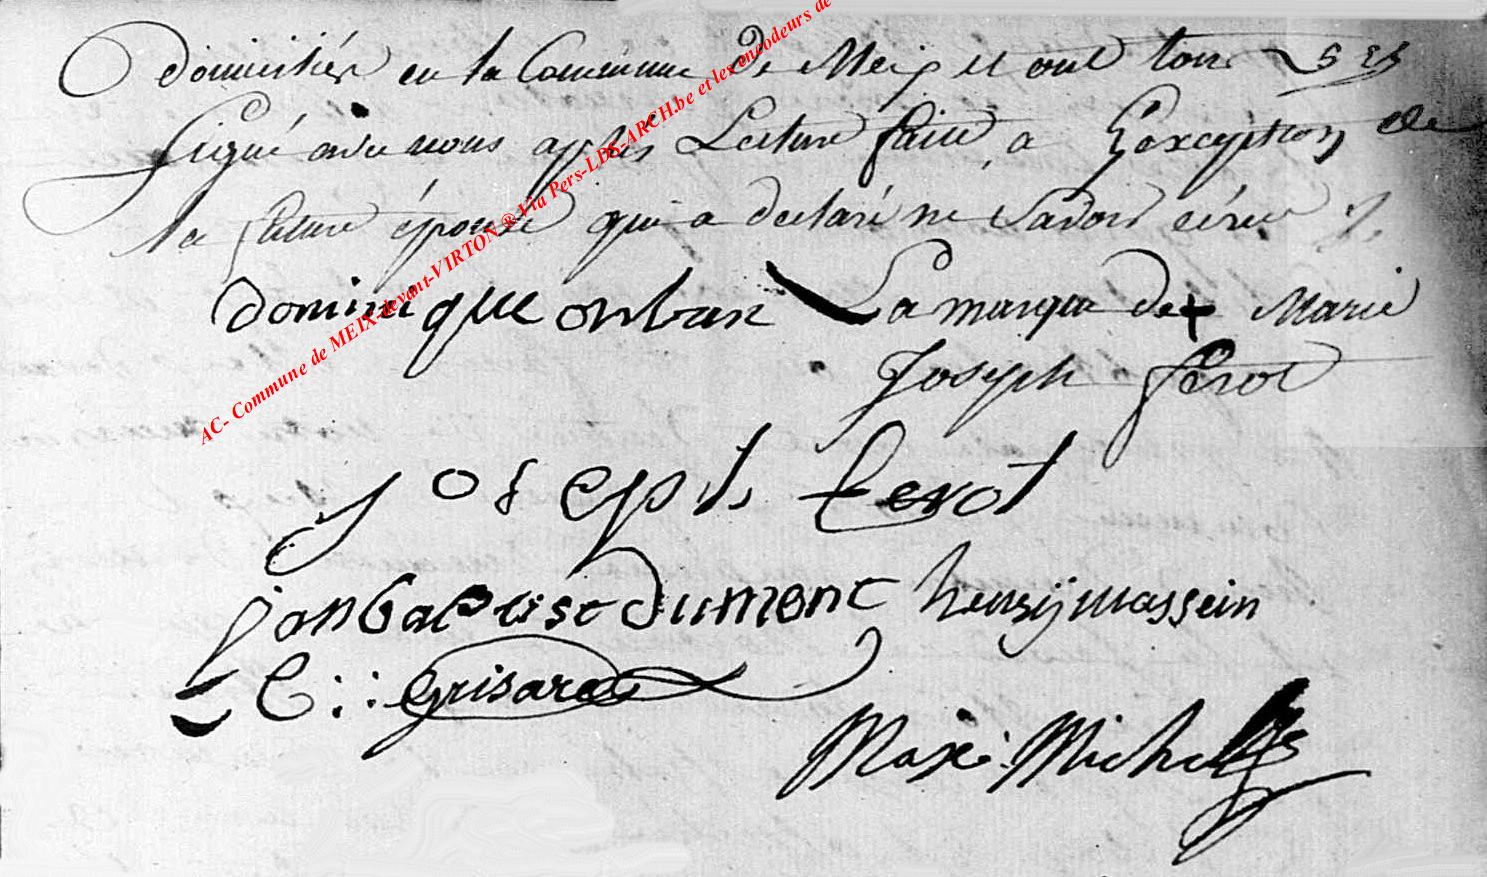 domiciliés en la Commune De Meix et ont tous
Signé avec nous après Lecture faite, a L'exception de
la future épouse qui a declaré ne Savoir écrire
dominique onbax La marque de + Marie
Joseph ferot
joseph ferot
janbaptiste dumont henrÿ massein
C : : Grisard
Maxi: Michel
AC- Commune de MEIX-devant-VIRTON ® Via Pers-LDS-ARCH.be et les encodeurs de